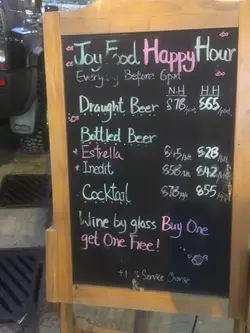 Joy Food Happy Hour
Everyday Before 6pm
N.H H.H
Draught Beer $78 $65
Bottled Beer
* Estrella $45 $28
* Inedit $58 $42
Cocktail $78 $55
Wine by glass Buy One
get One Free!
Service Charge